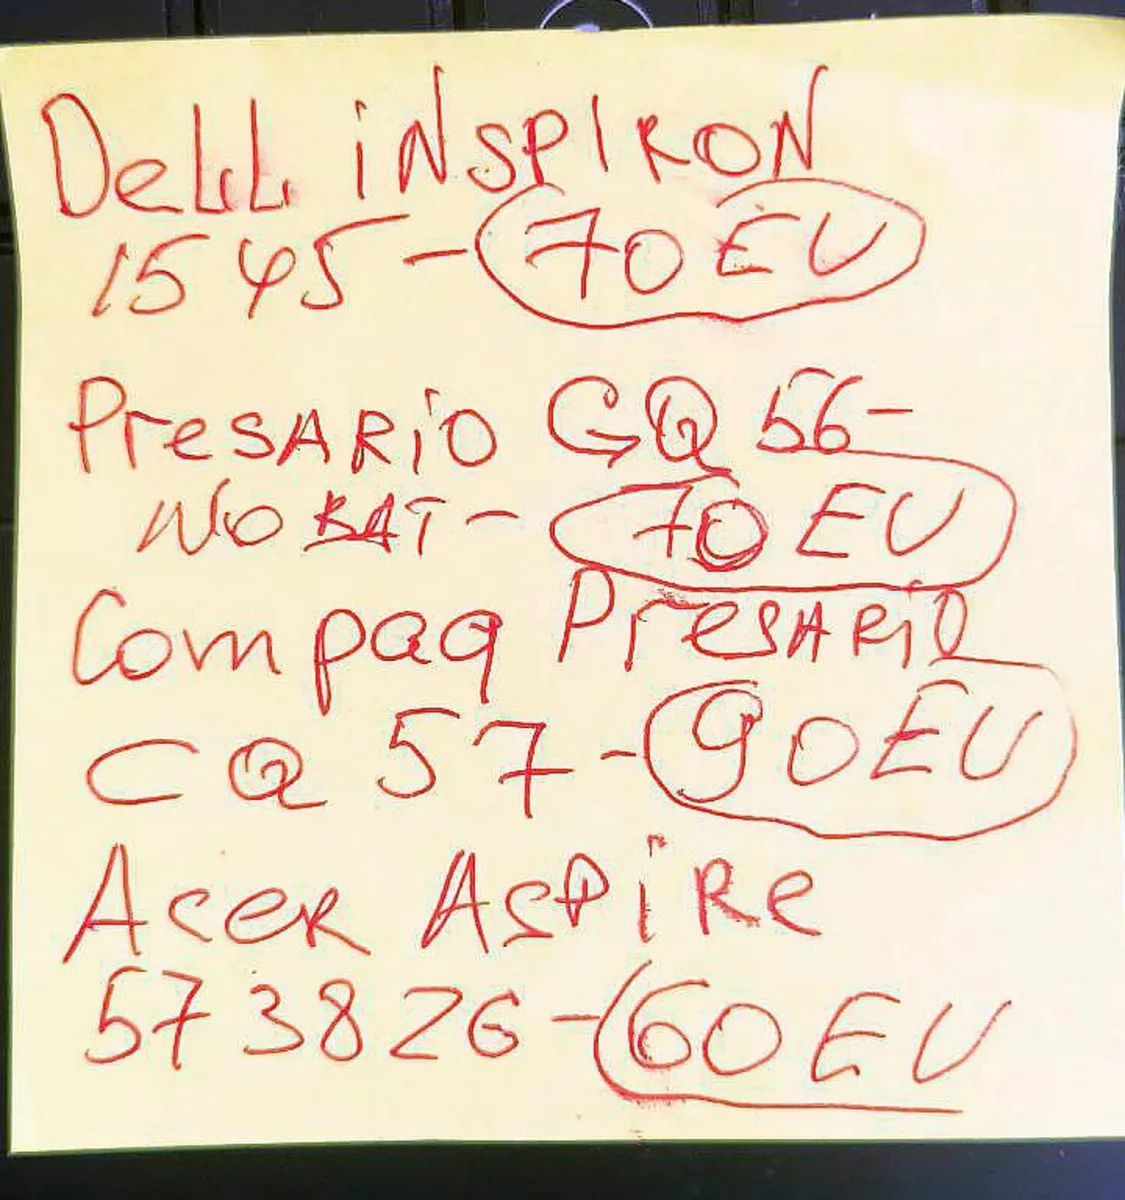 Dell iNSPIRON
1545 - 70 EU
PreSARiO CQ 56 -
NO BAT - 70 EU
Compaq PreSARiO
CQ 57 - 90 EU
AceR ASPiRe
5738ZG - 60 EU